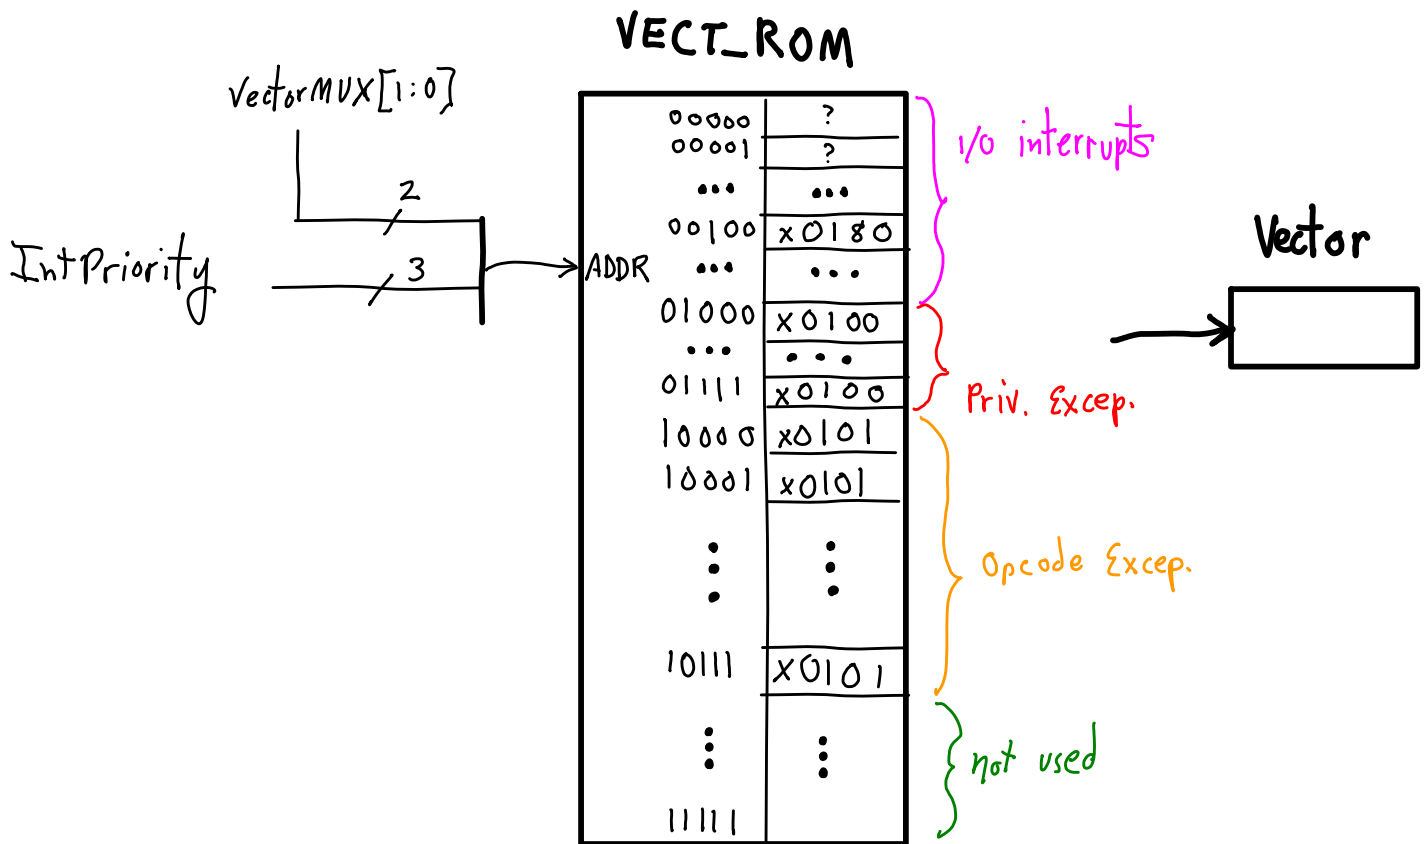 VECT_ROM
VectorMUX[1:0]
2
IntPriority
3
ADDR
00000 ?
00001 ?
... ...
00100 x0180
... ...
01000 x0100
... ...
01111 x0100
10000 x0101
10001 x0101
10111 x0101
11111
I/O interrupts
Priv. Excep.
Opcode Excep.
not used
Vector